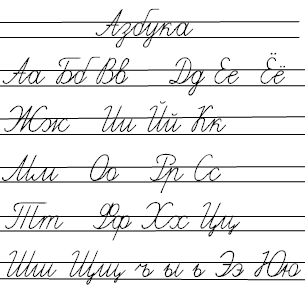 Азбука
Аа Бб Вв Дд Ее Ёё
Жж Ии Йй Кк
Мм Оо Рр Сс
Тт Фф Хх Цц
Шш Щщ ъ ы ь Ээ Юю